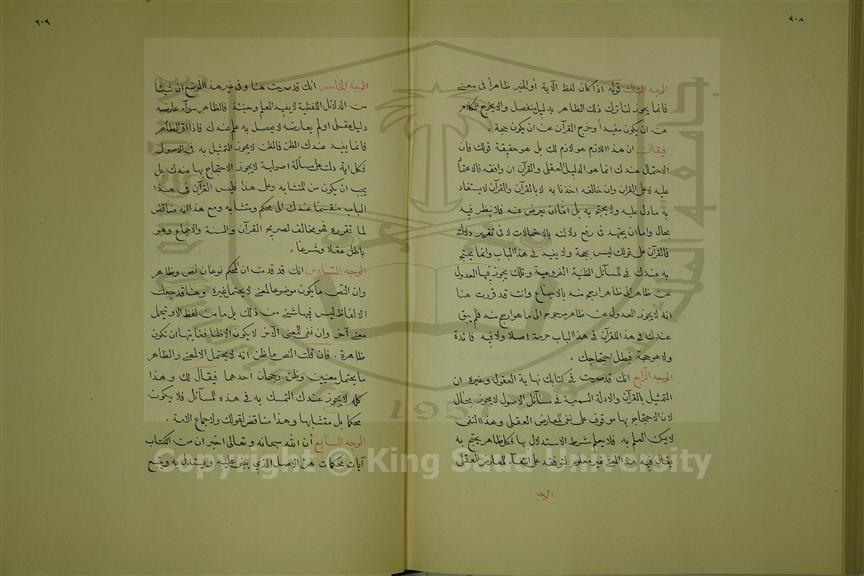 ٢٠٨
الوجه الثالث قوله اذا كان لفظ الآية أو الخبر ظاهراً في معنى
فانما يجوز لنا ترك ذلك الظاهر بدليل منفصل والا لخرج الكلام
عن ان يكون مفيداً وخرج القرآن عن ان يكون حجة .
فيقال ان هذا اللازم هو لازم لك بل هو حقيقة قولك فان
الاحتمال عندك انما هو الدليل العقلى والقرآن ان وافقه فالاعتماد
عليه لا على القران وان خالفه اخذنا به لا بالقرآن والقرآن لا يستفاد
به مادل عليه ولا يحتج به بل اما ان يعرض عنه فلا ينظر فيه
بحال واما ان يجتهد في رفع دلالته بالاحتمالات لا في تقرير دلالته
فالقرآن على قولك ليس بحجة ولا يفيد في هذا الباب وانما يحتج
به عندك في المسائل الظنية الفروعية وتلك يجوز فيها العدول
عن ظاهر الى ظاهر ارجح منه بالاجماع وانت قد قررت هنا
انه لا يجوز العدول من ظاهر مرجوح الى ما هو ارجح منه فلم يبق
عندك في هذا للقرآن في هذا الباب حرمة اصلا ولا فيه فائدة
ولا هو حجة فبطل احتجاجك .
الوجه الرابع انك قد صرحت في كتابك نهاية العقول وغيره ان
التمسك بالقرآن والادلة السمعية في مسائل الاصول لا يجوز بحال
لان الاحتجاج بها موقوف على نفى المعارض العقلى وهذا النفى
لا يمكن العلم به فلا يعلم شرط الاستدلال بها فكل ظاهر يحتج به
يقال فيه هذا اللفظ غير معلوم لتوقفه على انتفاء المعارض العقلى
٢٠٩
الوجه الخامس انك قد صرحت هنا وفى غير هذا الموضع ان شيئاً
من الدلائل اللفظية لا يفيد العلم وحينئذ فالظاهر سواء عارضه
دليل عقلى او لم يعارضه لا يحصل به علم عندك فاذا اقر الظاهر
فانما يفيد عندك الظن فالظن لا يجوز التمسك به في الاصول
فكل اية دلت على مسألة اصولية لا يجوز الاحتجاج بها عندك بل
يجب ان يكون من المتشابه وعلى هذا فليس القرآن في هذا
الباب منقسماً عندك الى محكم ومتشابه ومع هذا انه مناقض
لما تقرره فهو مخالف لصريح القرآن والسنة والاجماع وهو
باطل عقلا وشرعاً .
الوجه السادس انك قد قدمت ان المحكم نوعان نص وظاهر
وان النص ما يكون موضوعا لمعنى لا يحتمل غيره وهنا قد جعلت
الالفاظ ليس فيها شئ من ذلك بل ما من لفظ الا ويحتمل
معنى آخر وان نفى المعنى الآخر لا يكون الا ظنا فغايتها ان تكون
ظاهرة . فان قلت النص ما ظن انه لا يحتمل الا لمعنى والظاهر
ما يحتمل معنيين وظن رجحان احدهما فيقال لك وهذا
كله لا يجوز عندك التمسك به في هذه المسائل فلا يكون
محكما بل متشابها وهذا مناقض لقولك ولاجماع الامة .
الوجه السابع أن الله سبحانه وتعالى اخبر ان من الكتاب
آيات محكمات هن الاصل الذي يبنى عليه ويستدل به ويتبع
Copyright © King Saud University
1957